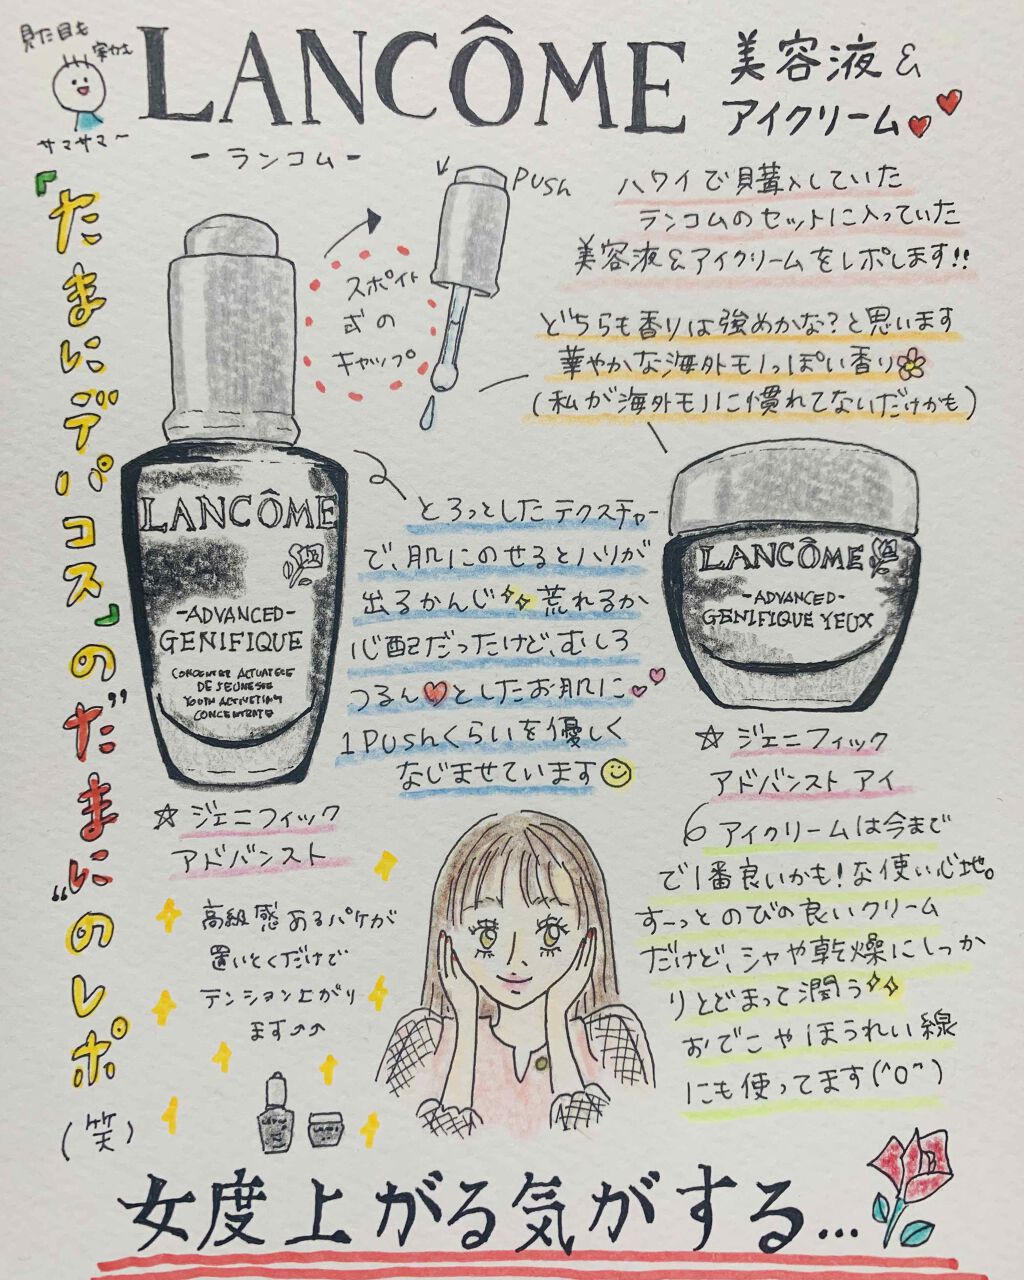 見た目も
実力も
サマサマ〜
LANCÔME
美容液&
アイクリーム
-ランコム-
『たまにデパコス』の"たまに"のレポ
(笑)
Push
スポイト
式の
キャップ
ハワイで購入していた
ランコムのセットに入っていた
美容液&アイクリームをレポします!!
どちらも香りは強めかな?と思います
華やかな海外モノっぽい香り
(私が海外モノに慣れてないだけかも)
LANCÔME
-ADVANCED-
GENIFIQUE
DE JEUNESSE
YOUTH ACTIVATING
CONCENTRATE
とろっとしたテクスチャー
で、肌にのせるとハリが
出るかんじ 荒れるか
心配だったけど、むしろ
つるん としたお肌に
1Pushくらいを優しく
なじませています
LANCÔME
-ADVANCED-
GENIFIQUE YEUX
☆ジェニフィック
アドバンスト アイ
アイクリームは今まで
で1番良いかも!な使い心地。
すーっとのびの良いクリーム
だけど、シャや乾燥にしっか
りとどまって潤う
おでこやほうれい線
にも使ってます(^O^)
☆ジェニフィック
アドバンスト
高級感あるパケが
置いとくだけで
テンション上がり
ます↑↑
女度上がる気がする...